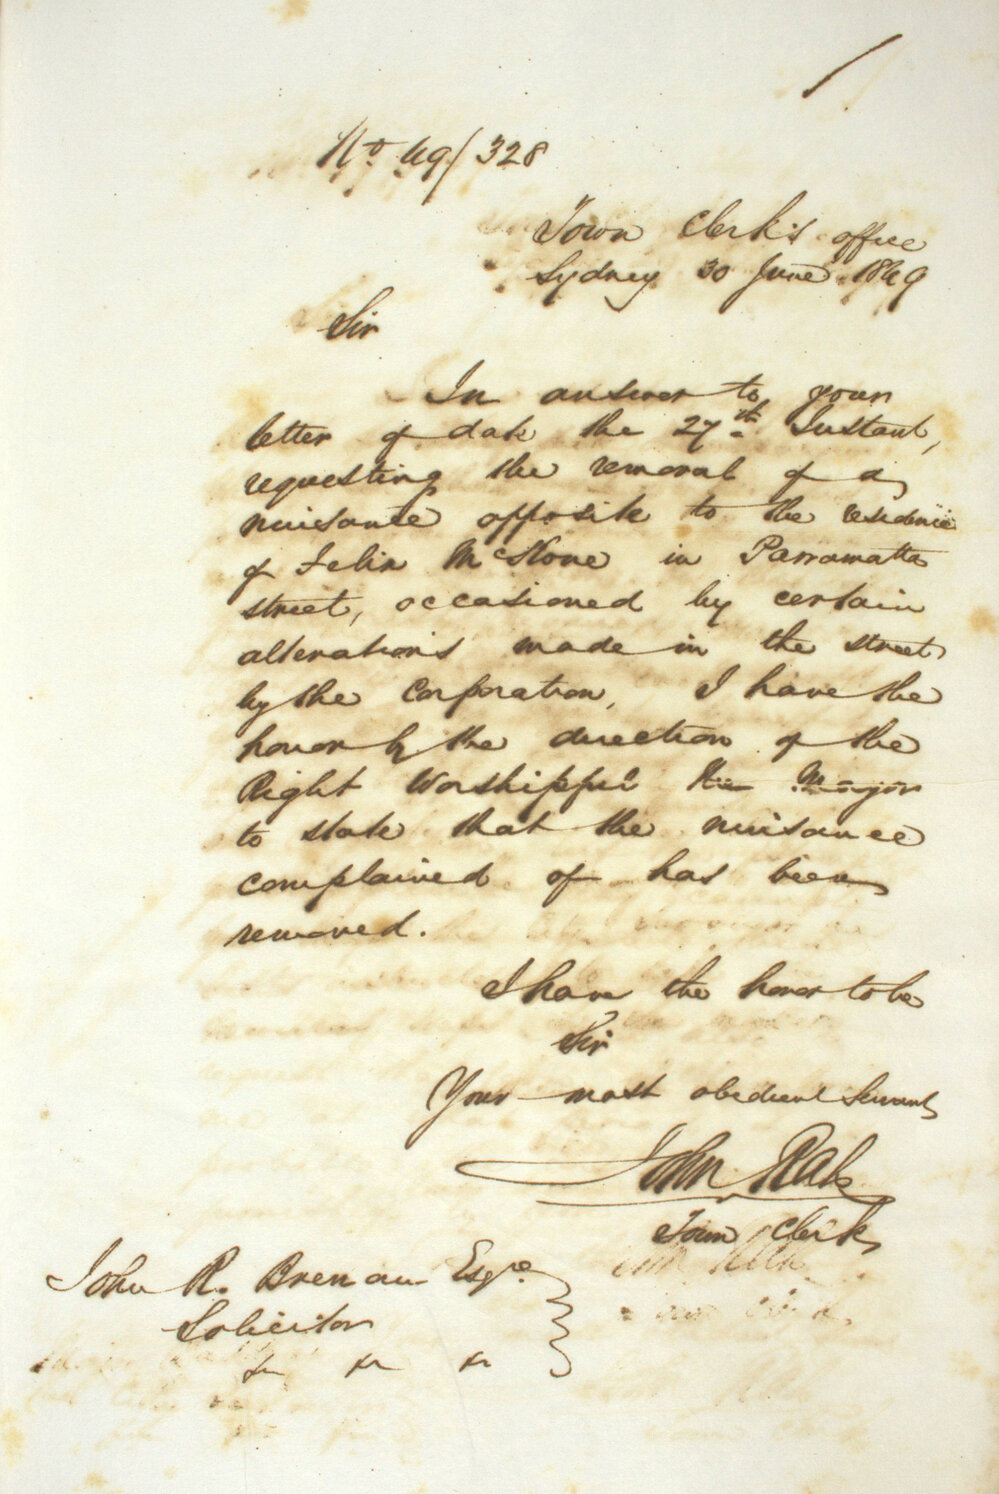 1
No 49/328
Town Clerk's office
Sydney 30 June 1849
Sir
In answer to your
letter of date the 27th Instant,
requesting the removal of a
nuisance opposite to the residence
of Felix McHone in Parramatta
street, occasioned by certain
alterations made in the street
by the Corporation, I have the
honor by the direction of the
Right Worshipful the Mayor
to state that the nuisance
complained of has been
removed.
I have the honor to be
Sir
Your most obedient Servant
John Rae
Town Clerk
John R. Brenan Esqre.
Solicitor